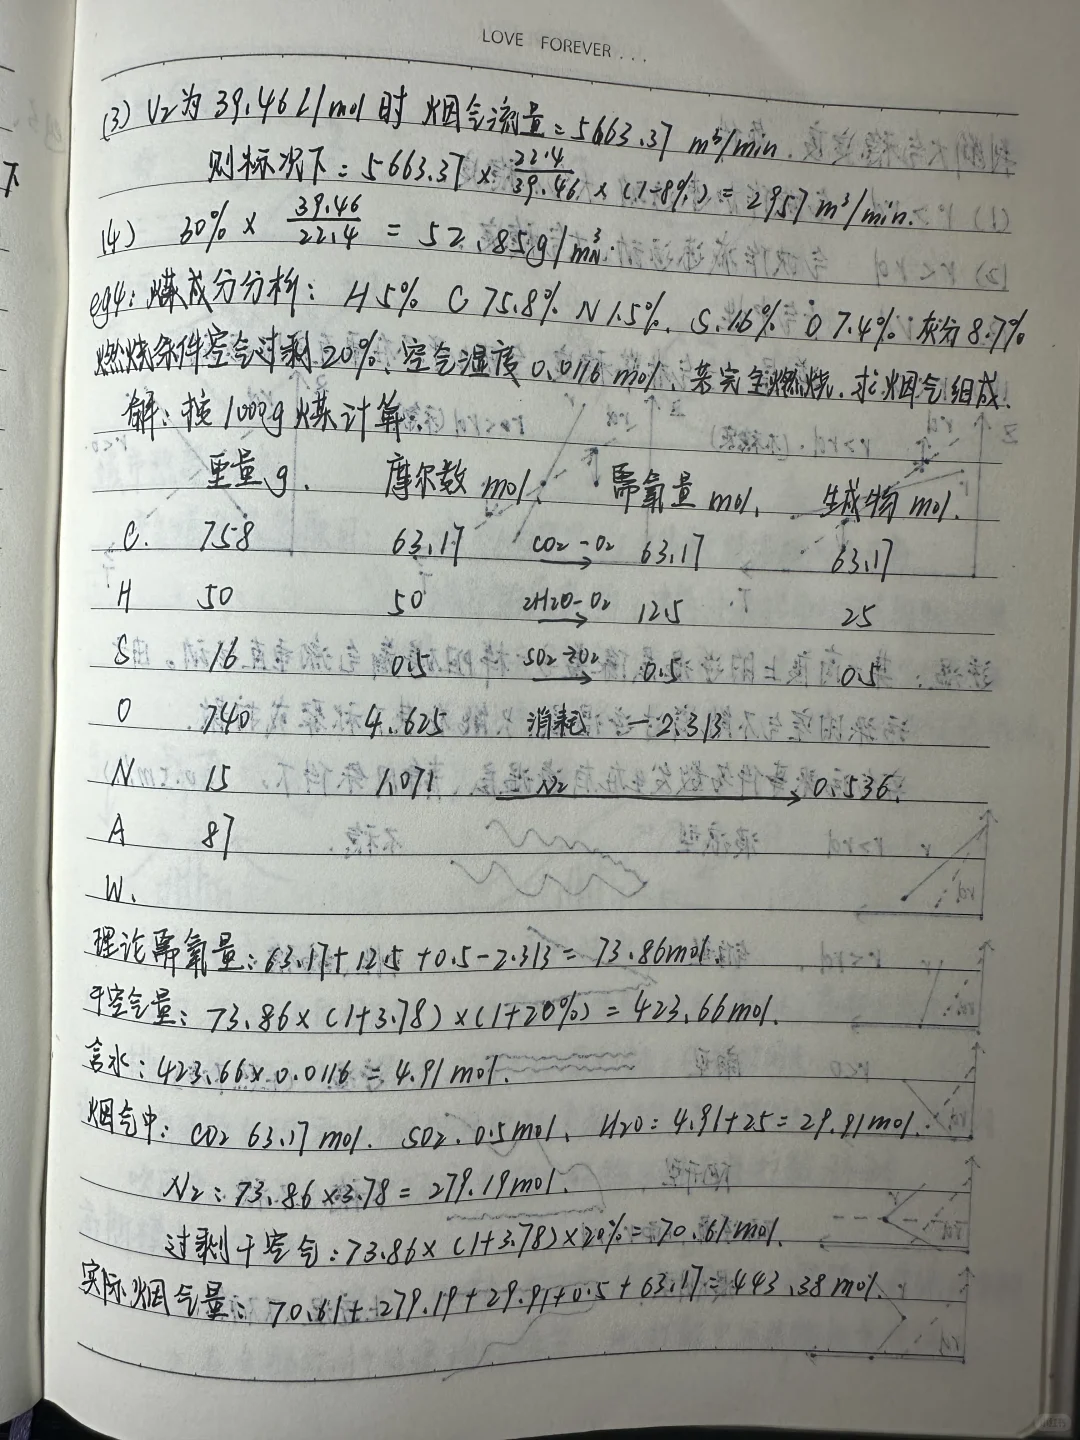 LOVE FOREVER...
(3) V₂为 39.46 L/mol 时 烟气流量 = 5663.37 m³/min.
则标况下: 5663.37 × 22.4/39.46 × (1-8%) = 2957 m³/min.
(4) 30% × 39.46/22.4 = 52.85g/m³N.
eg4: 煤成分分析: H 5% C 75.8% N 1.5%. S.1.6% O 7.4% 灰分 8.7%
燃烧条件空气过剩 20%. 空气湿度 0.0116 mol, 若完全燃烧. 求烟气组成.
解: 按 1000g 煤计算:
重量 g. 摩尔数 mol. 需氧量 mol. 生成物 mol.
C. 758 63.17 CO₂-O₂→ 63.17 63.17
H 50 50 2H₂O-O₂→ 12.5 25
S 16 0.5 SO₂-O₂→ 0.5 0.5
O 740 4.625 消耗 -2.313
N 15 1.071 N₂→ 0.536.
A 87
W.
理论需氧量: 63.17+12.5+0.5-2.313 = 73.86mol.
干空气量: 73.86×(1+3.78)×(1+20%) = 423.66mol.
含水: 423.66×0.0116 = 4.91 mol.
烟气中: CO₂ 63.17 mol. SO₂. 0.5mol. H₂O: 4.91+25=29.91mol.
N₂: 73.86×3.78 = 279.19mol.
过剩干空气: 73.86×(1+3.78)×20% = 70.61mol.
实际烟气量: 70.61+279.19+29.91+0.5+63.17=443.38mol.